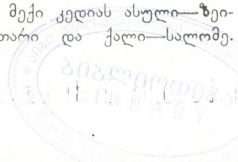 მექი კედიას ასული—ზეი-
თარი და ქალი—სალომე.
ბიბლიოთეკა